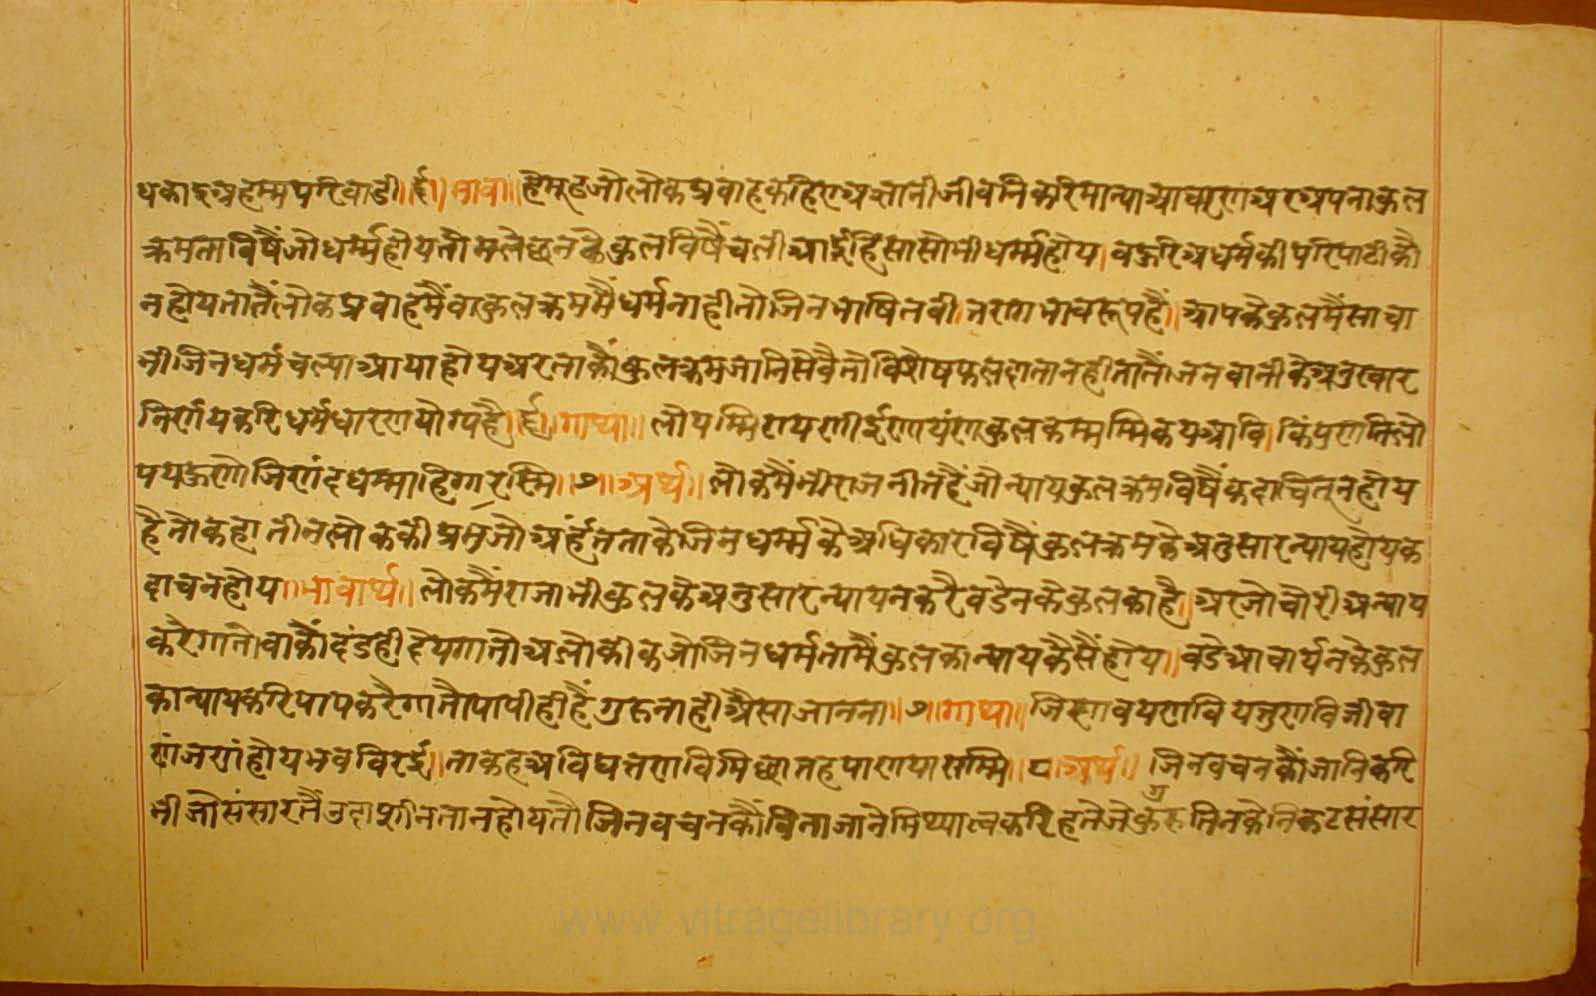 थकाइ अहम्म परिवाडी॥६॥भावा॥ हे मूढ जो लोक प्रवाह करि अर अज्ञानी जीवनि करि मान्या आचरण अर अपना कुल
क्रम ता विषैं जो धर्म्म होय तौ मलेछन के कुल विषैं चली आई हिंसा सो भी धर्म्म होय। बहुरि अधर्म की परिपाटी कौ
न होय तातैं लोक प्रवाह मैं वा कुल क्रम मैं धर्म नाही तो जिन भाषित वीतराग भाव रूप है॥ आपके कुल मैं साचा
भी जिन धर्म चल्या आया होय अर ताकौं कुल क्रम जानि सेवै तौ विशेष फल दाता नही तातैं जिनवानी के अनुस्वार
निर्णय करि धर्म धारण योग्य है॥६॥गाथा॥ लोयम्मि राय णीई णायं ण कुल कम्मम्मि कयआवि। किं पुण तिलो
य पऊणो जिणंद धम्माहिगारम्मि॥७॥अर्थ॥ लोक मैं भी राजनीत है जो न्याय कुलक्रम विषैं कदाचित् न होय
है तो कहो तीन लोक की प्रभु जो अर्हंत ताके जिन धर्म्म के अधिकार विषैं कुल क्रम के अनुसार न्याय होय क
दाच न होय॥भावार्थ॥ लोक मैं राजा भी कुल के अनुसार न्याय न करै वडेन के कुल का है॥ अर जो चोरी अन्याय
करैगा तौ वाकौं दंड ही देयगा तो अलोकीक जो जिन धर्म तामैं कुल का न्याय कैसैं होय॥ वडे आचार्यन के कुल
का न्याय करि पाप करैगा तौ पापी ही है गुरु नाही अैसा जानना॥७॥गाथा॥ जिण वयण वियतुण वि जीवा
णं ज णं होय भव विरई॥ ता कह अवियत्तण वि मिछात हयाण पासम्मि॥८॥अर्थ॥ जिन वचन कौं जानि करि
भी जो संसार तैं उदाशीनता न होय तौ जिन वचन कौं विना जाने मिथ्यात्व करि हते जे कुगुरु तिनके निकट संसार
www.vitragelibrary.org